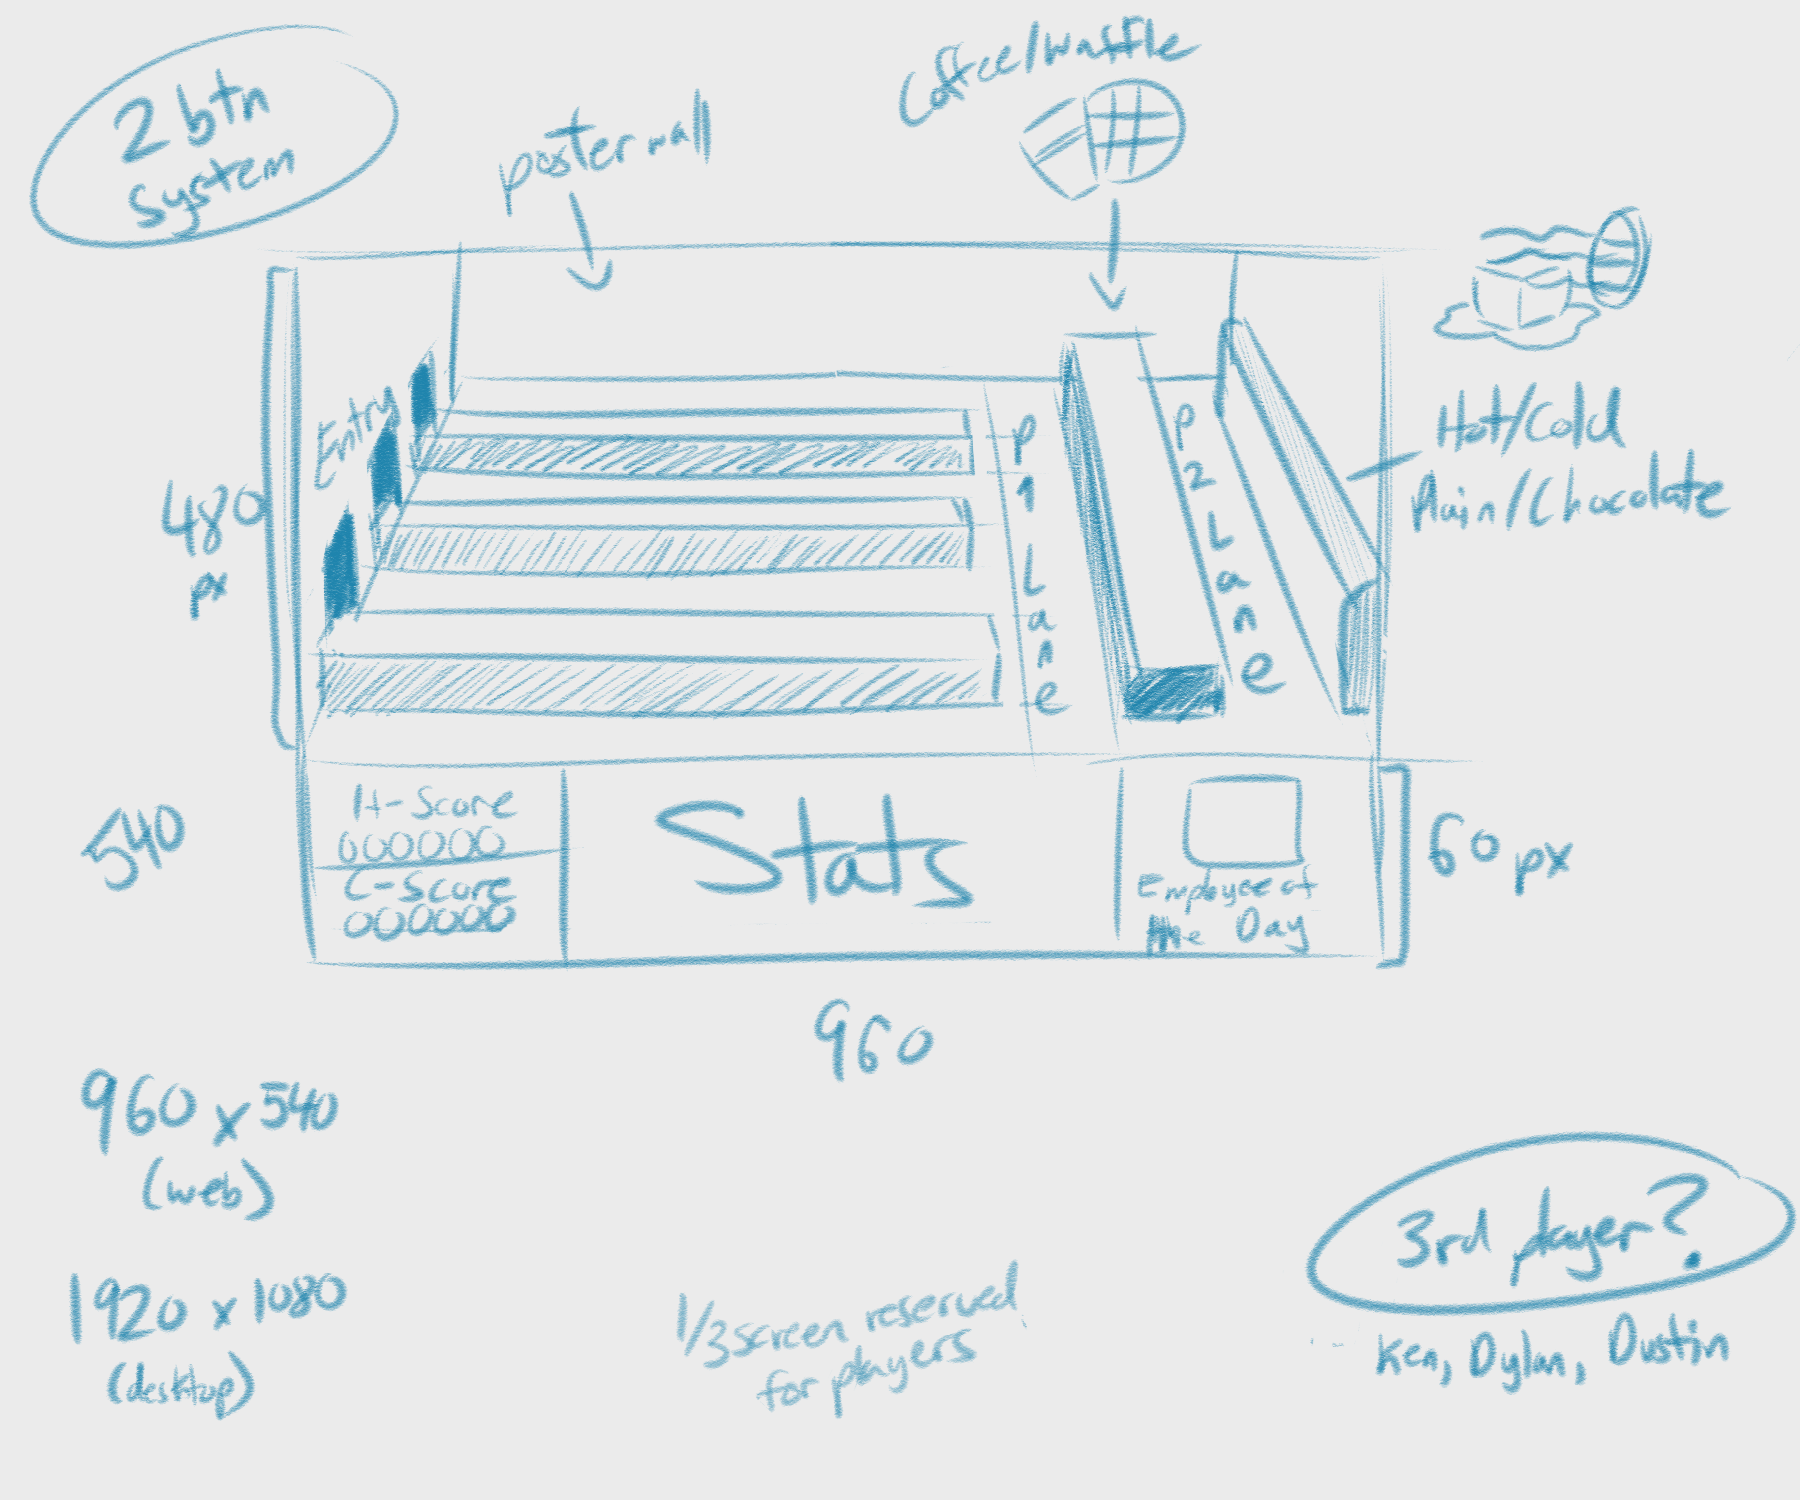 2 btn
system
poster wall
Coffee/waffle
Entry
P1 Lane
P2 Lane
Hot/Cold
Plain/Chocolate
480
px
H-Score
000000
C-Score
000000
Stats
Employee of
the Day
540
60 px
960
960 x 540
(web)
1920 x 1080
(desktop)
1/3 screen reserved
for players
3rd player?
Ken, Dylan, Dustin